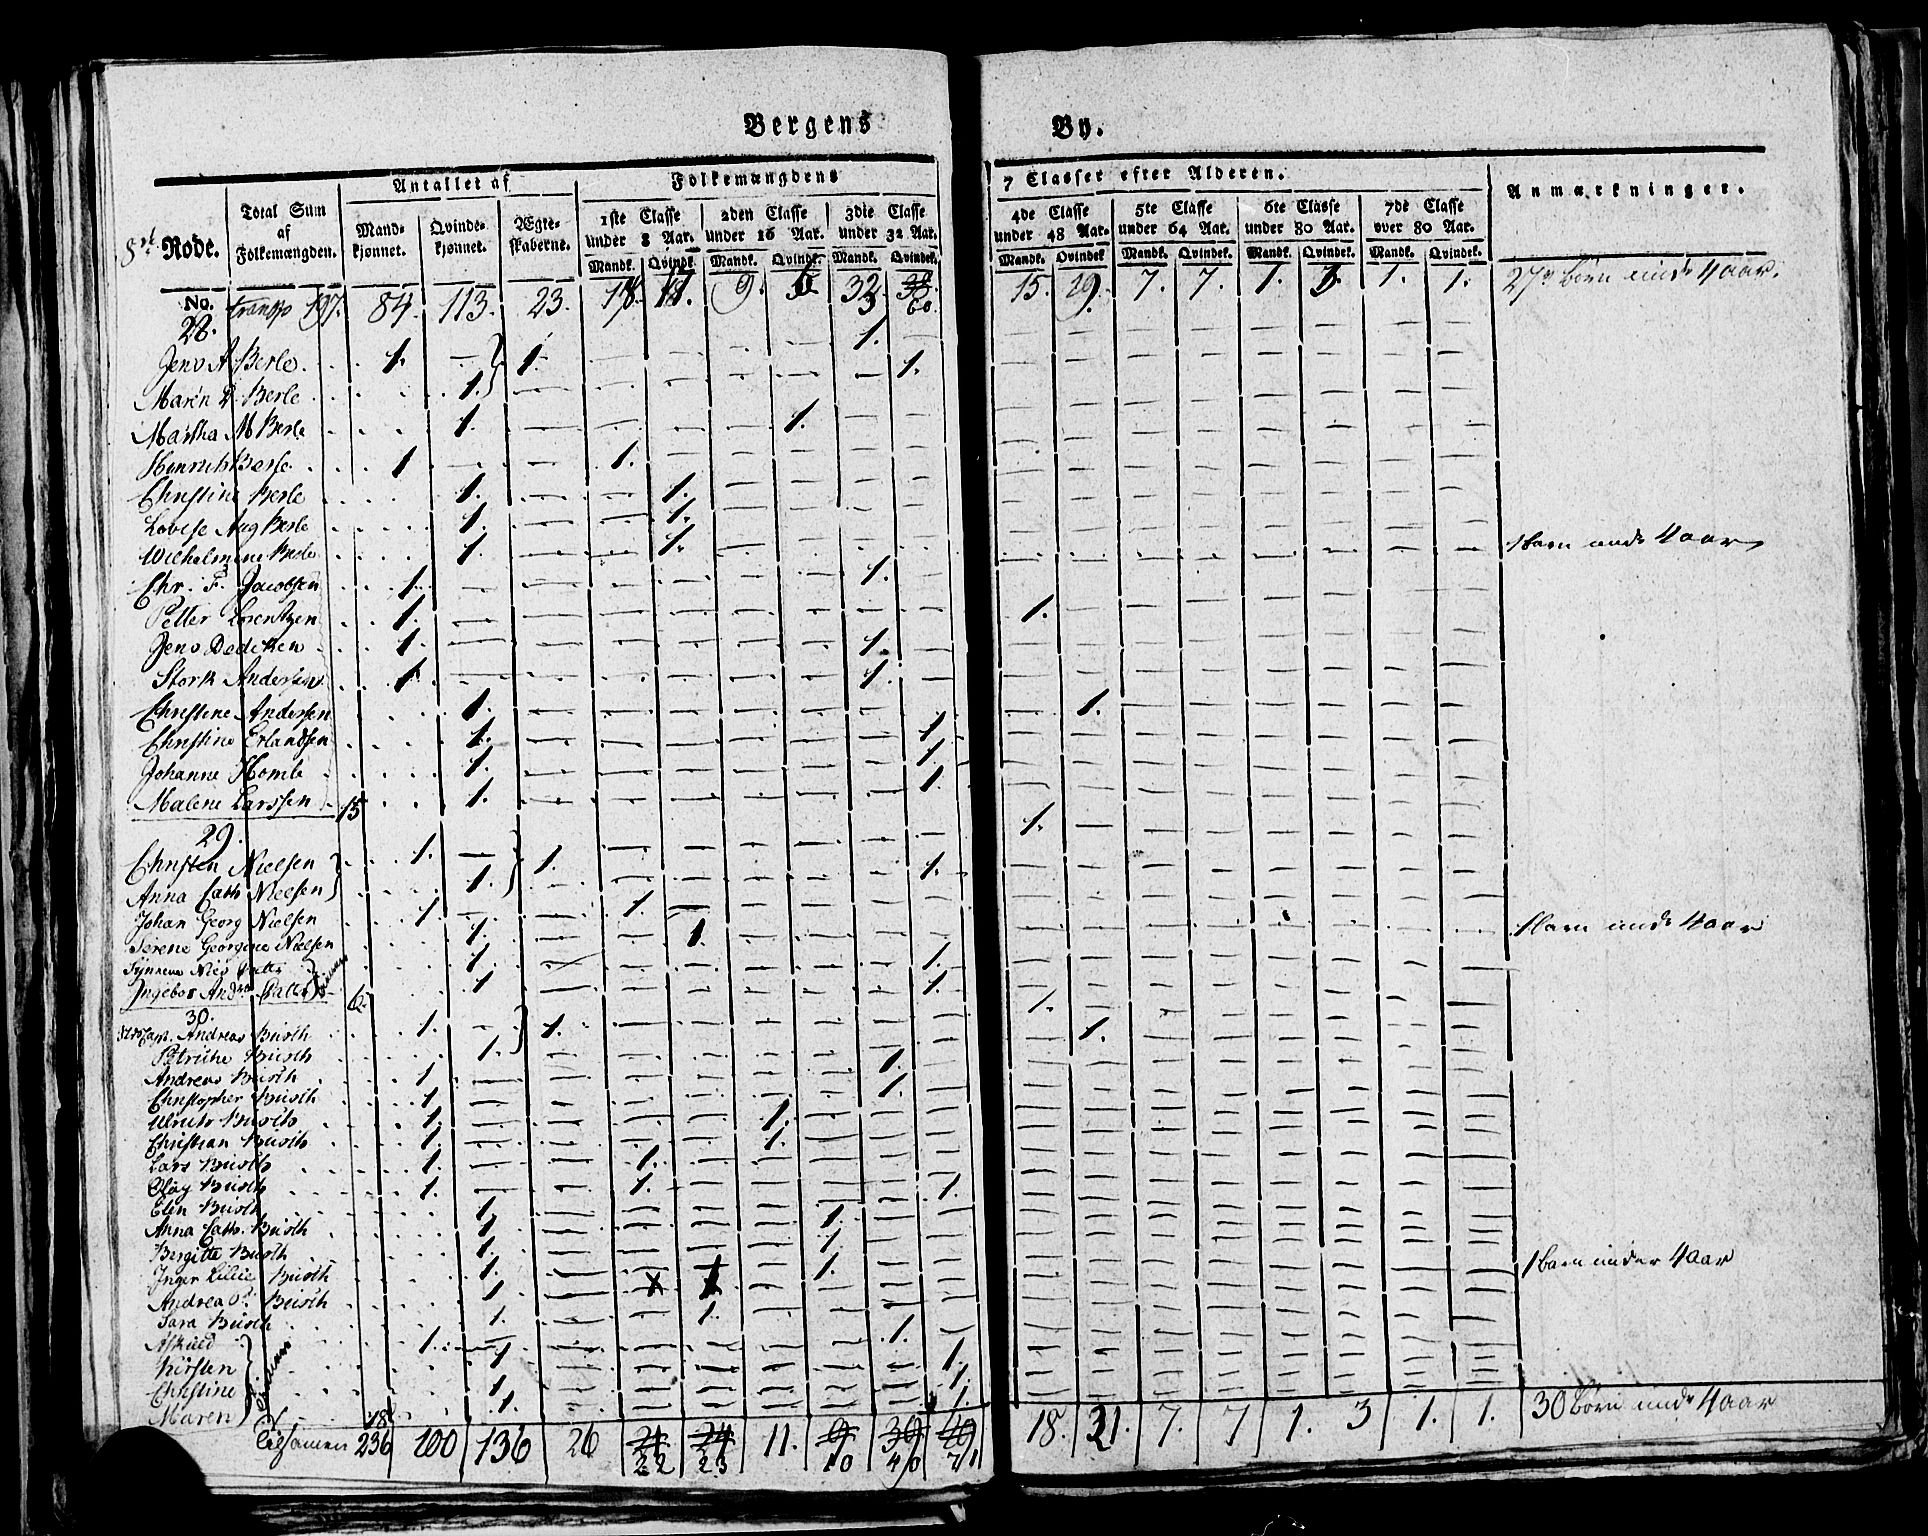 Bergens By.
8de Rode.
Total Sum af Folkemængden.
Antallet af
Mandkjønnet.
Qvindekjønnet.
Ægteskaberne.
Folkemængdens 7 Classer efter Alderen.
1ste Classe under 8 Aar.
2den Classe under 16 Aar.
3die Classe under 32 Aar.
4de Classe under 48 Aar.
5te Classe under 64 Aar.
6te Classe under 80 Aar.
7de Classe over 80 Aar.
Anmærkninger.
Mandk. Qvindek. Mandk. Qvindek. Mandk. Qvindek. Mandk. Qvindek. Mandk. Qvindek. Mandk. Qvindek. Mandk. Qvindek.
No. transp 197. 84. 113. 23. 9. 32. 60. 15. 29. 7. 7. 1. 3. 1. 1. 27 børn unde 4 aar.
28.
Jens A Berle 1. — 1. 1.
Maren D. Berle 1. 1.
Martha M Berle 1. 1.
Henrich Berle 1 1.
Christine Berle 1. 1.
Lovise Aug Berle 1. 1.
Wilhelmine Berle 1. 1. 1 barn unde 4 aar
Chr. F. Jacobsen 1. 1.
Petter Lorentzen 1. 1.
Jens Dedeken 1. 1.
Stork Andersen 1. 1.
Christine Andersen 1. 1.
Christine Erlandsen 1. 1.
Johanne Homle 1. 1.
Malene Larssen 15 1. 1.
29.
Christen Nielsen 1. — 1. 1.
Anna Cath Nielsen 1. 1.
Johan Georg Nielsen 1 1.
Serene Georgine Nielsen 1. 1. 1 barn unde 4 aar
Synneve Nies Datter 1. 1.
Ingebor And. Datter 6. 1 1.
30.
Capt. Andreas Busch 1. 1. 1.
Petriche Busch 1. 1.
Andreas Busch 1 1.
Christopher Busch 1. 1.
Ulrich Busch 1. 1
Christian Busch 1. 1.
Lars Busch 1. 1.
Olay Busch 1. 1.
Elen Busch 1 1.
Anna Cath. Busch 1 1.
Bergitte Busch 1. 1.
Inger Busch 1. 1.
Andrea Busch 1. x 1 1 barn under 4 aar
Sara Busch 1. 1.
Askild 1. 1.
Kirsten 1 1.
Christine 1 1.
Maren 18 1. 1.
Tilsamen 236 100 136 26 22 23 11. 10 40 71 18. 31. 7. 7 1. 3 1. 1. 30 børn unde 4 aar